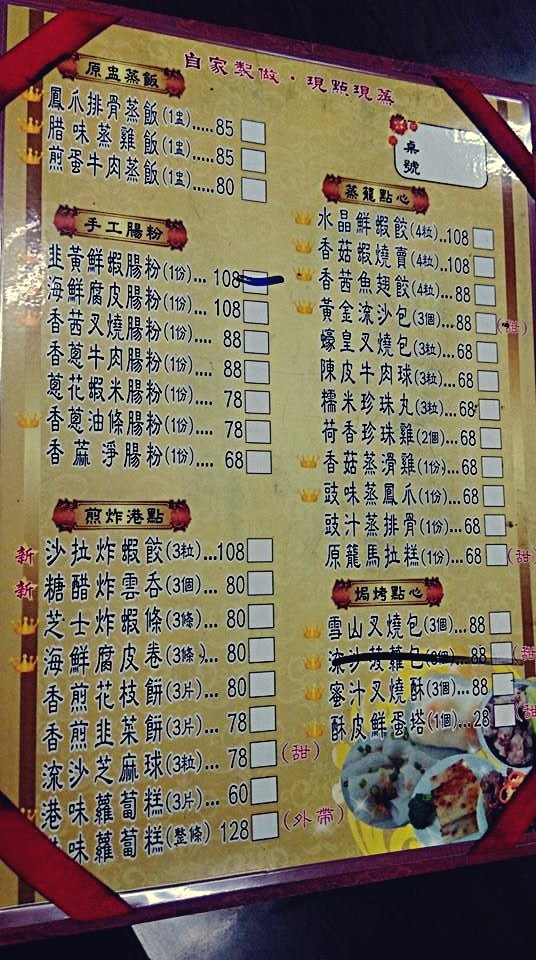 自家製做・現點現蒸
原盅蒸飯
鳳爪排骨蒸飯(1盅).....85
腊味蒸雞飯(1盅).....85
煎蛋牛肉蒸飯(1盅).....80
手工腸粉
韭黃鮮蝦腸粉(1份)... 108
海鮮腐皮腸粉(1份).... 108
香茜叉燒腸粉(1份).... 88
香蔥牛肉腸粉(1份).... 88
蔥花蝦米腸粉(1份).... 78
香蔥油條腸粉(1份).... 78
香蔴淨腸粉(1份).... 68
煎炸港點
新 沙拉炸蝦餃(3粒)...108
新 糖醋炸雲吞(3個)... 80
芝士炸蝦條(3條)... 80
海鮮腐皮卷(3條)... 80
香煎花枝餅(3片)... 80
香煎韭菜餅(3片)... 78
流沙芝麻球(3粒)... 78 (甜)
港味蘿蔔糕(3片)... 60
味蘿蔔糕(整條) 128 (外帶)
桌號
蒸籠點心
水晶鮮蝦餃(4粒)..108
香菇蝦燒賣(4粒)..108
香茜魚翅餃(4粒)...88
黃金流沙包(3個)...88 (甜)
蠔皇叉燒包(3粒)...68
陳皮牛肉球(3粒)...68
糯米珍珠丸(3粒)...68
荷香珍珠雞(2個)...68
香菇蒸滑雞(1份)...68
豉味蒸鳳爪(1份)...68
豉汁蒸排骨(1份)...68
原籠馬拉糕(1份)...68 (甜
焗烤點心
雪山叉燒包(3個)...88
流沙菠蘿包(3個)...88 (甜
蜜汁叉燒酥(3個)...88
酥皮鮮蛋塔(1個)...28 (甜